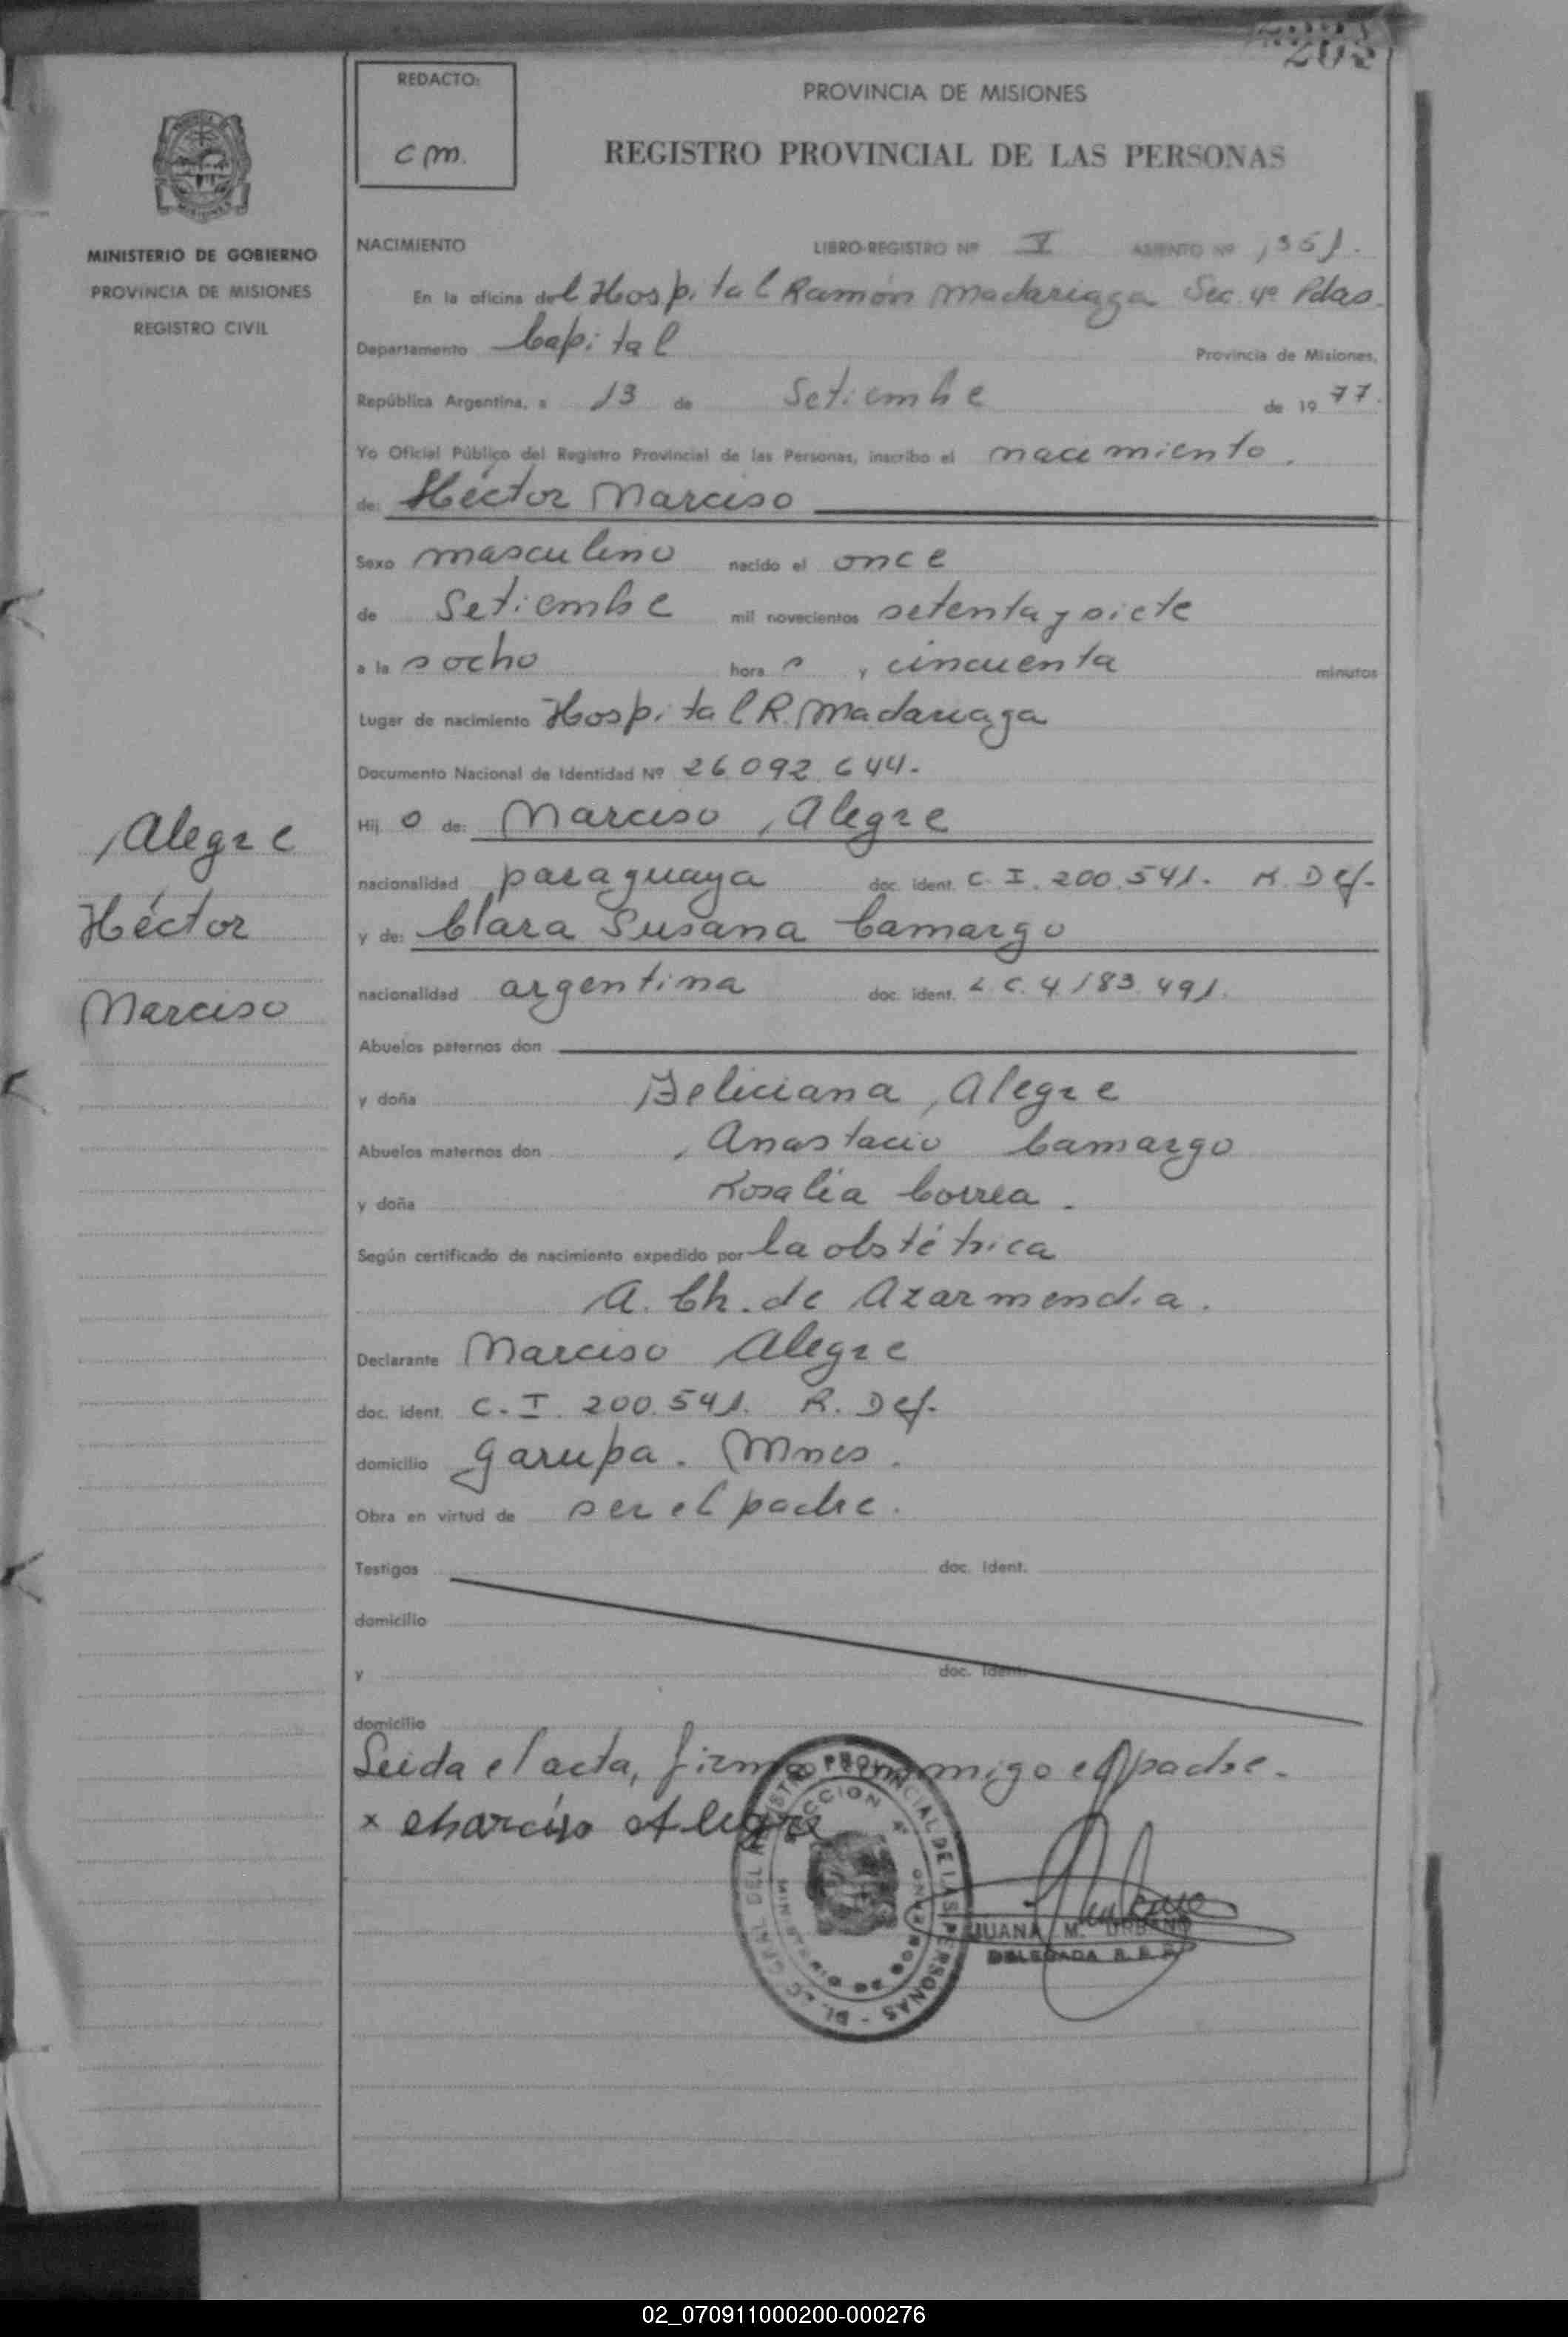 205
REDACTO:
C M.
PROVINCIA DE MISIONES
REGISTRO PROVINCIAL DE LAS PERSONAS
MINISTERIO DE GOBIERNO
PROVINCIA DE MISIONES
REGISTRO CIVIL
NACIMIENTO LIBRO-REGISTRO Nº V ASIENTO Nº 1351.
En la oficina del Hospital Ramón Madariaga Sec. 4ª Pdas.
Departamento Capital Provincia de Misiones,
República Argentina, a 13 de Setiembre de 19 77.
Yo Oficial Público del Registro Provincial de las Personas, inscribo el nacimiento.
de: Héctor Narciso
Sexo masculino nacido el once
de Setiembre mil novecientos setenta y siete
a la s ocho hora s y cincuenta minutos
Lugar de nacimiento Hospital R. Madariaga
Documento Nacional de Identidad Nº 26 092 644.
Hij o de: Narciso Alegre
nacionalidad paraguaya doc. ident. C. I. 200.541. R. Def.
y de: Clara Susana Camargo
nacionalidad argentina doc. ident. L. C. 4.183.491.
Alegre
Héctor
Narciso
Abuelos paternos don
y doña Feliciana Alegre
Abuelos maternos don Anastacio Camargo
y doña Rosalia Correa.
Según certificado de nacimiento expedido por la obstétrica
A. Ch. de Azarmendia.
Declarante Narciso Alegre
doc. ident. C. I. 200.541. R. Def.
domicilio Garupa. Mnes.
Obra en virtud de ser el padre.
Testigos doc. ident.
domicilio
y doc. ident.
domicilio
Leida el acta, firma conmigo el padre.
x Narciso Alegre
JUANA M. URBANO
DELEGADA R. P. P.
02_070911000200-000276